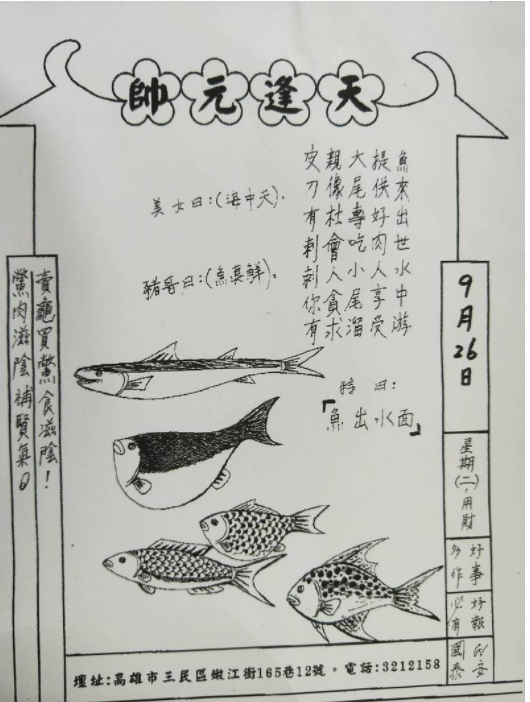 天逢元帥
魚來出世水中游
提供好肉人享受
大尾專吃小尾溜
親像社會人貪求
皮刀有刺刺你有
美女曰:(海中天).
豬哥曰:(魚真鮮).
特曰:
「魚出水面」
賣龜買鱉食滋陰!
鱉肉滋陰補賢氣。
9月26日
星期(二),用財
好事
多作
好報
必有
民安
國泰
壇址:高雄市三民區嫩江街165巷12號。電話:3212158